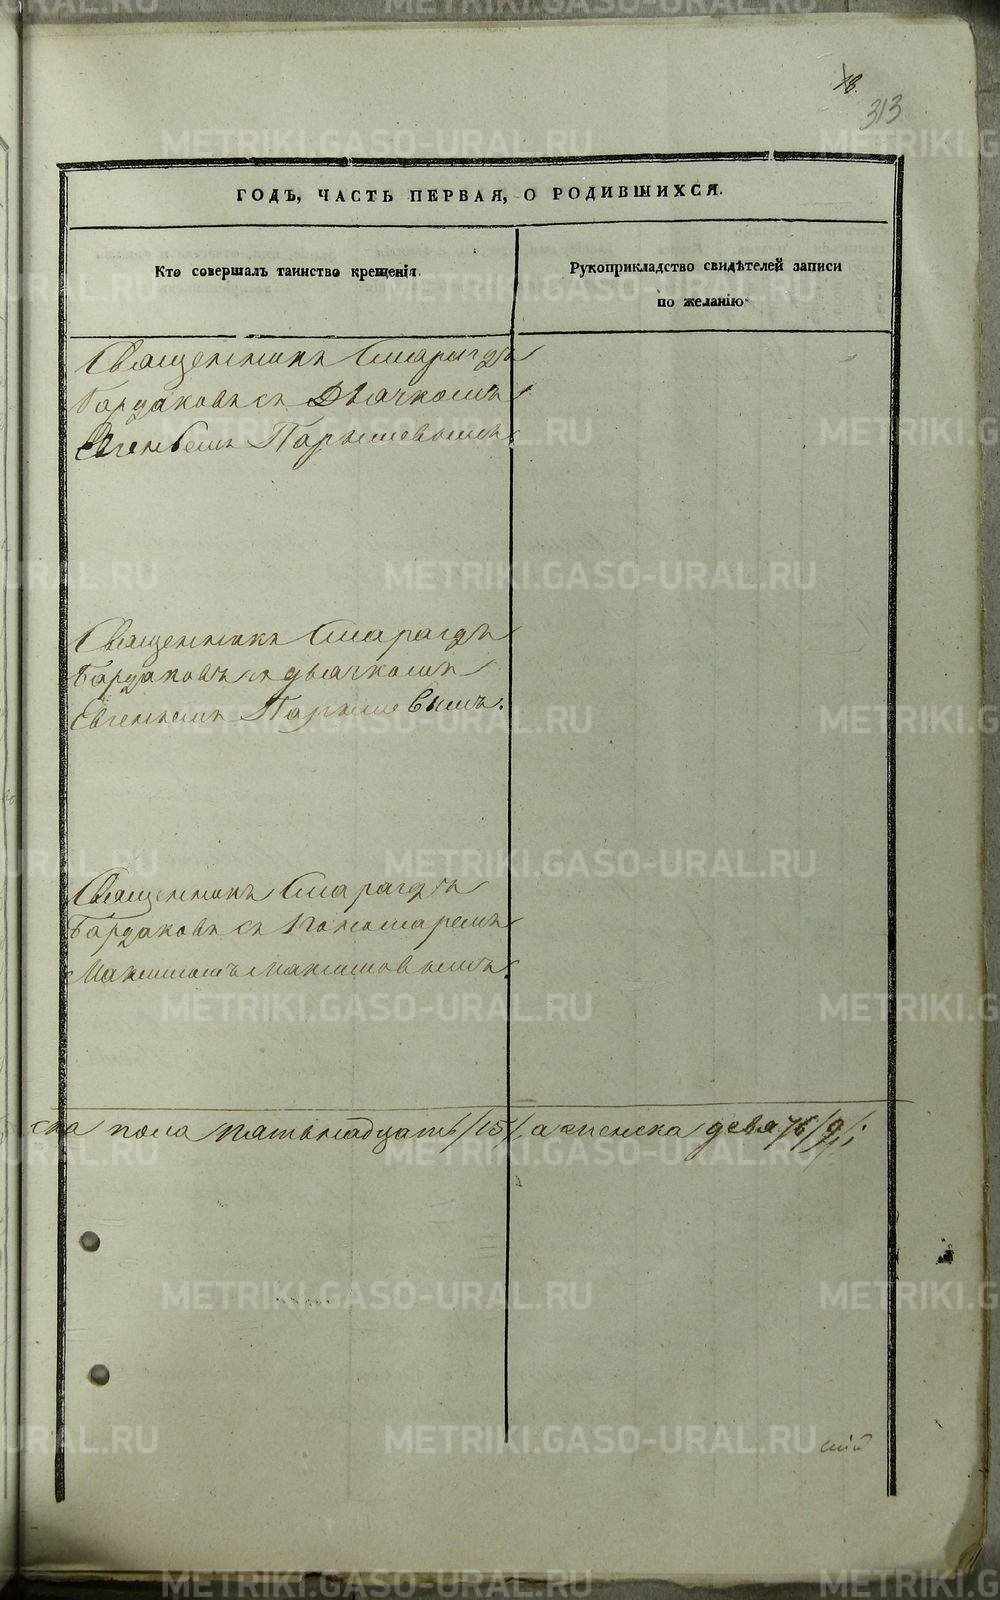 18.
313
ГОДЪ, ЧАСТЬ ПЕРВАЯ, О РОДИВШИХСЯ.
Кто совершалъ таинство крещенія.
Рукоприкладство свидѣтелей записи
по желанію.
Священникъ Смарагдъ
Бардаковъ съ Дьячкомъ
Евгеніемъ Парышевымъ.
Священникъ Смарагдъ
Бардаковъ съ дьячкомъ
Евгеніемъ Парышевымъ.
Священникъ Смарагдъ
Бардаковъ съ Пономаремъ
Максимомъ Максимовымъ.
ска пола пятьнадцать /15/, а женска девять /9/;
METRIKI.GASO-URAL.RU